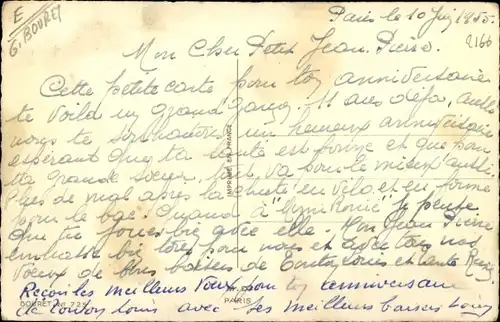 E
G. BOURET
Paris le 10 Juin 1955.
2166
Mon Cher Petit Jean Pierre.
Cette petite carte pour ton anniversaire
te voilà un grand garçon. 11 ans déjà,
nous te souhaitons un heureux anniversaire
espérant que ta santé est bonne et que pour
ta grande sœur tout va pour le mieux aussi.
Plus de mal après la chute en vélo, et en forme
pour le bac. Quand à je pense
que tu joues bien avec elle. Mon Jean Pierre
embrasse bien tous pour nous et avec tous nos
vœux de bons baisers de Tonton Louis et tante
Reçois les meilleurs vœux pour ton anniversaire
de tonton Louis avec ses meilleurs baisers
IMPRIMÉ EN FRANCE
PARIS